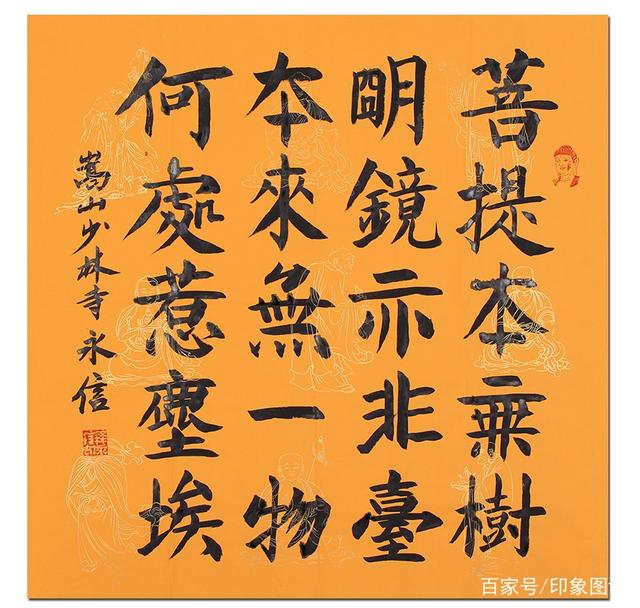 菩提本無樹
明鏡亦非臺
本來無一物
何處惹塵埃
嵩山少林寺永信
百家号/印象图